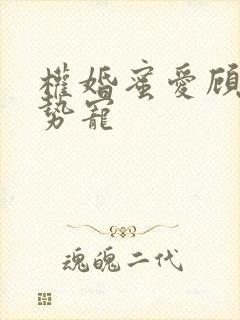 權婚蜜愛顧
勢寵
魂魄二代